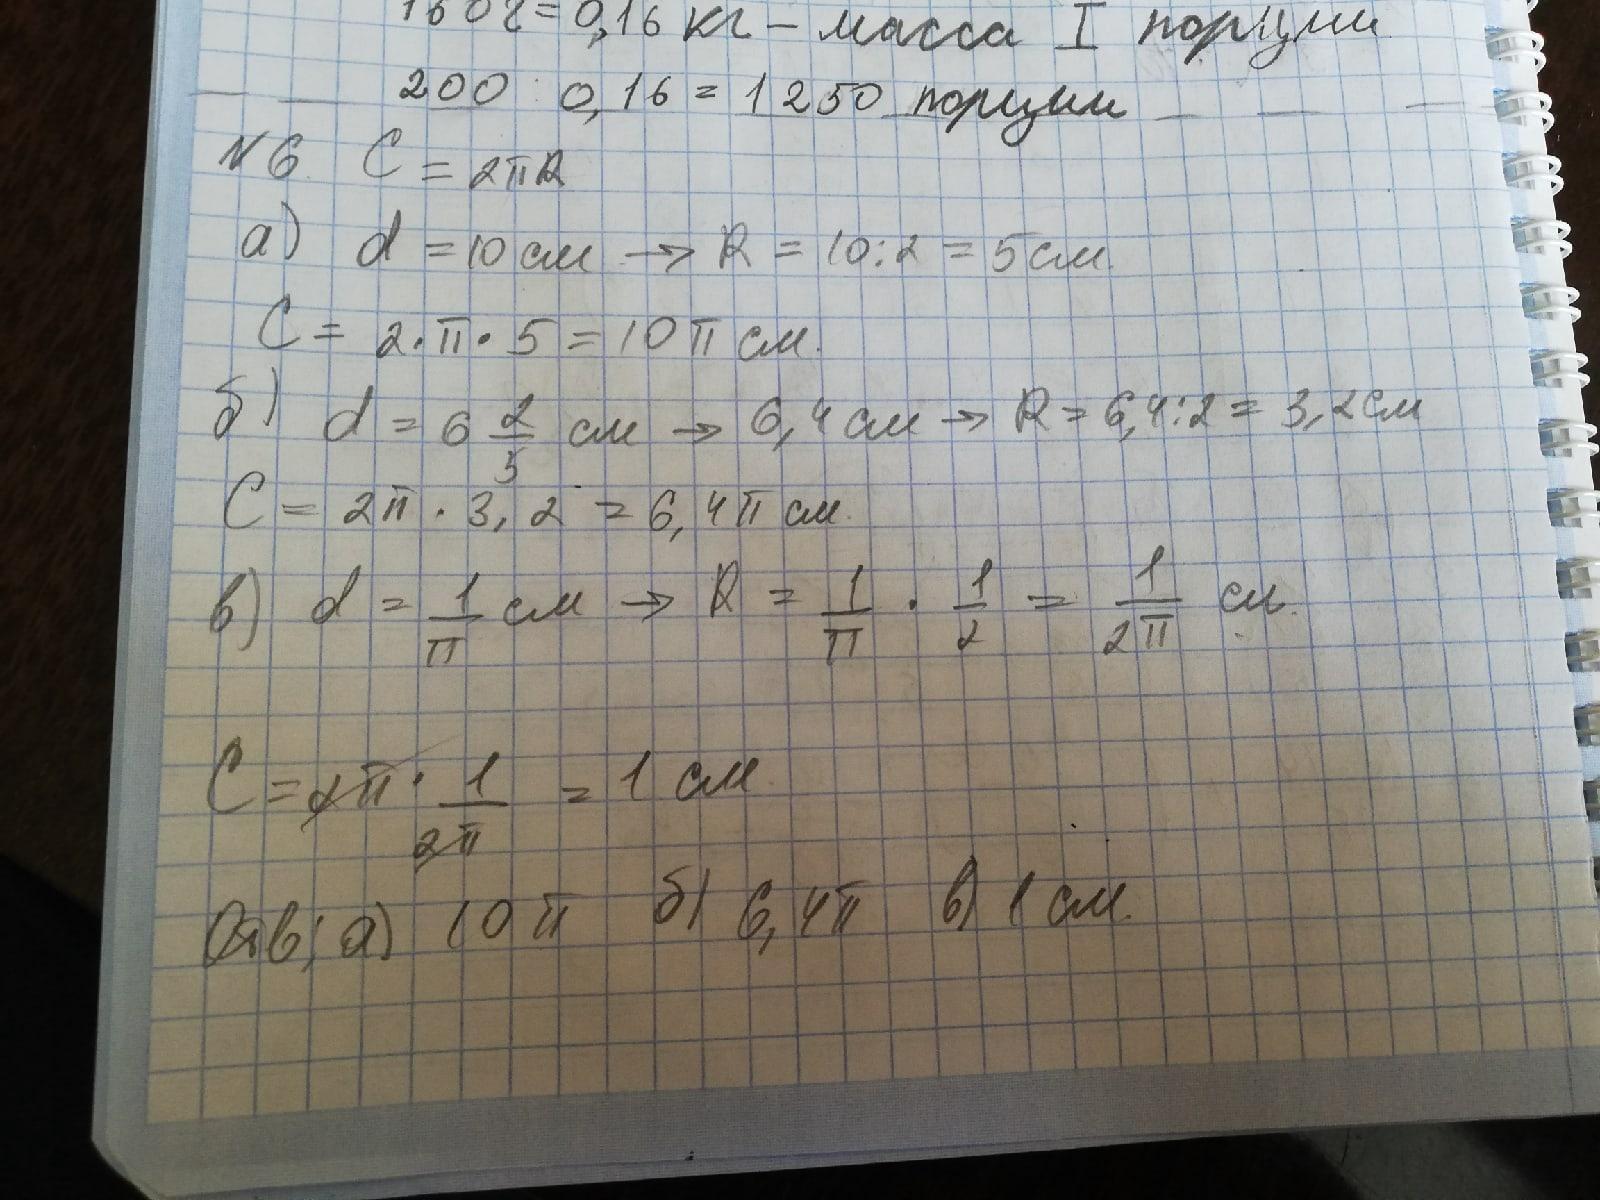 160 г = 0,16 кг – масса I порции
200 : 0,16 = 1250 порции
№6. C = 2πR
а) d = 10 см → R = 10:2 = 5 см.
C = 2·π·5 = 10π см.
б) d = 6 2/5 см → 6,4 см → R = 6,4:2 = 3,2 см
C = 2π · 3,2 = 6,4π см.
в) d = 1/π см → R = 1/π · 1/2 = 1/2π см.
C = 2π · 1/2π = 1 см.
Отв; а) 10π б) 6,4π в) 1 см.